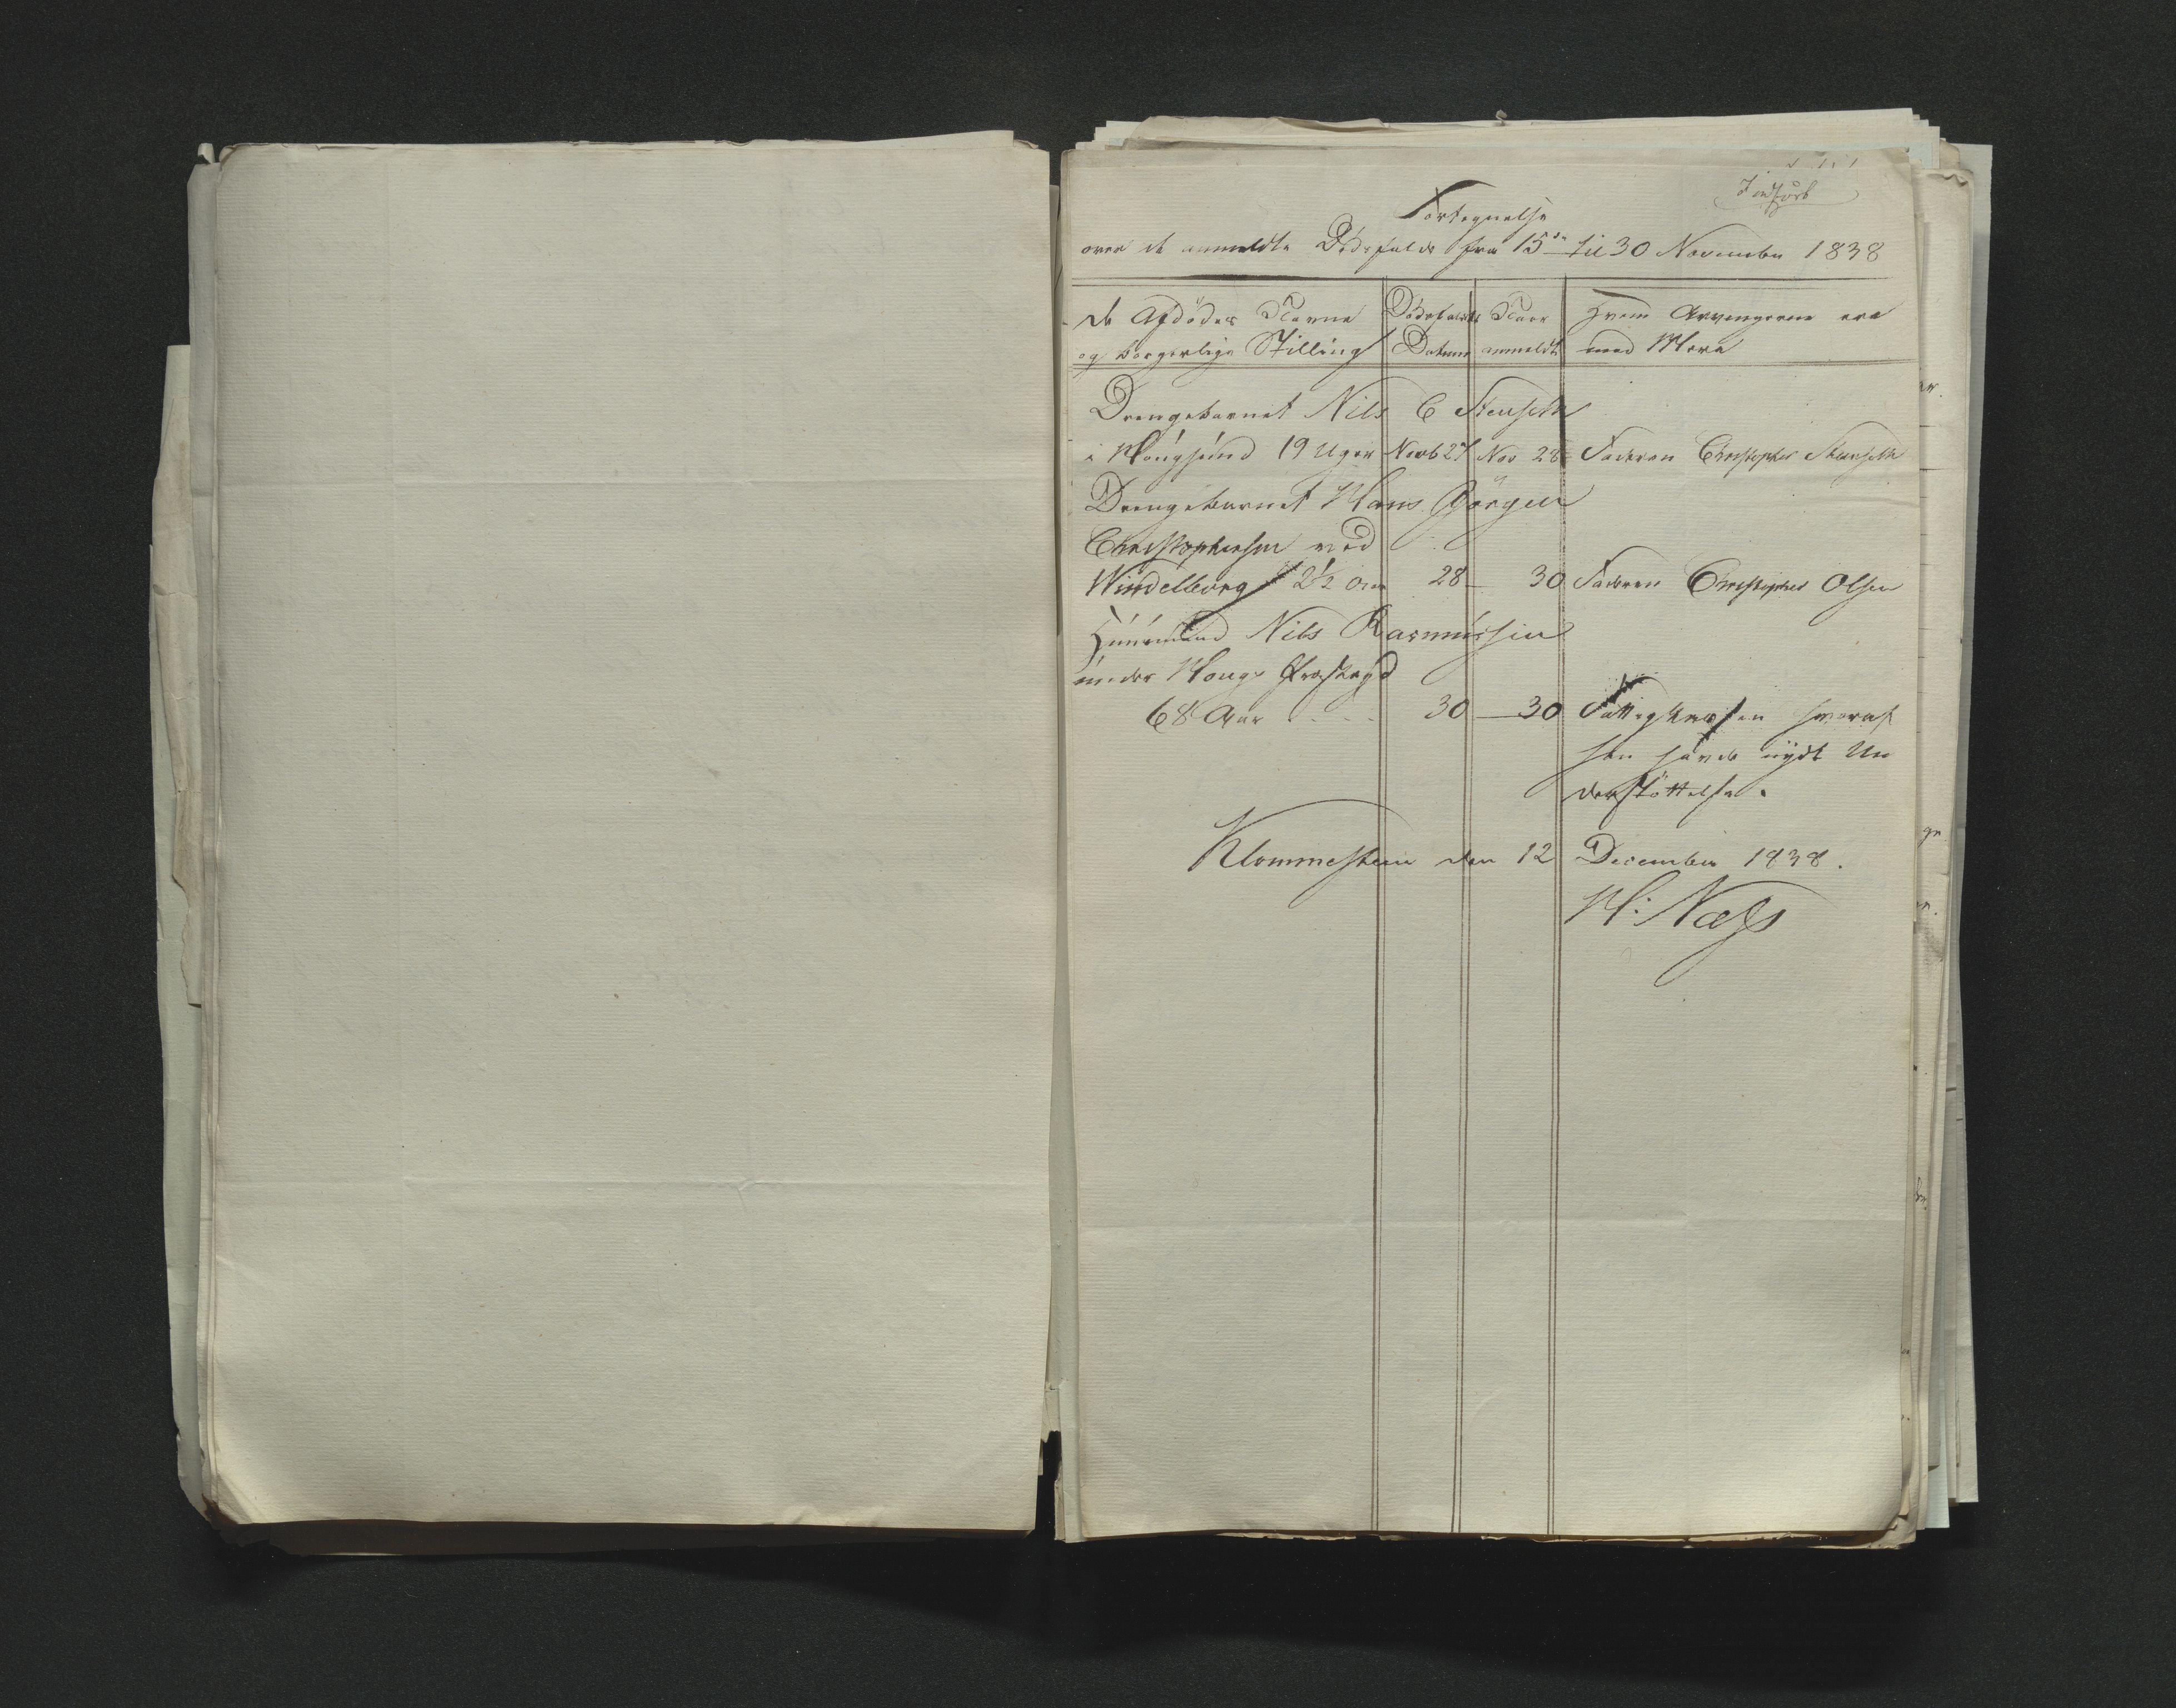 Indført
Fortegnelse
over de anmeldte Dödsfalde fra 15de til 30 November 1838
De Afdödes Navne Dödsfaldets Naar Hvem Arvingerne ere
og borgerlige Stilling Datum anmeldt med Mere
Drengebarnet Nils C Stenseth
i 19 Uger Novb 27 Nov 28 Faderen Christopher Stenseth
Drengebarnet Hans Jörgen
Christophersen ved
Windelborg 2½ Aar 28 — 30 Faderen Christopher Olsen
Huusmand Nils Rasmussen
under Præstegd
68 Aar . . . . 30 — 30 Fattigkassen hvoraf
han havde nydt Un
derstöttelse.
Klommesteen den 12 December 1838.
H: Næss